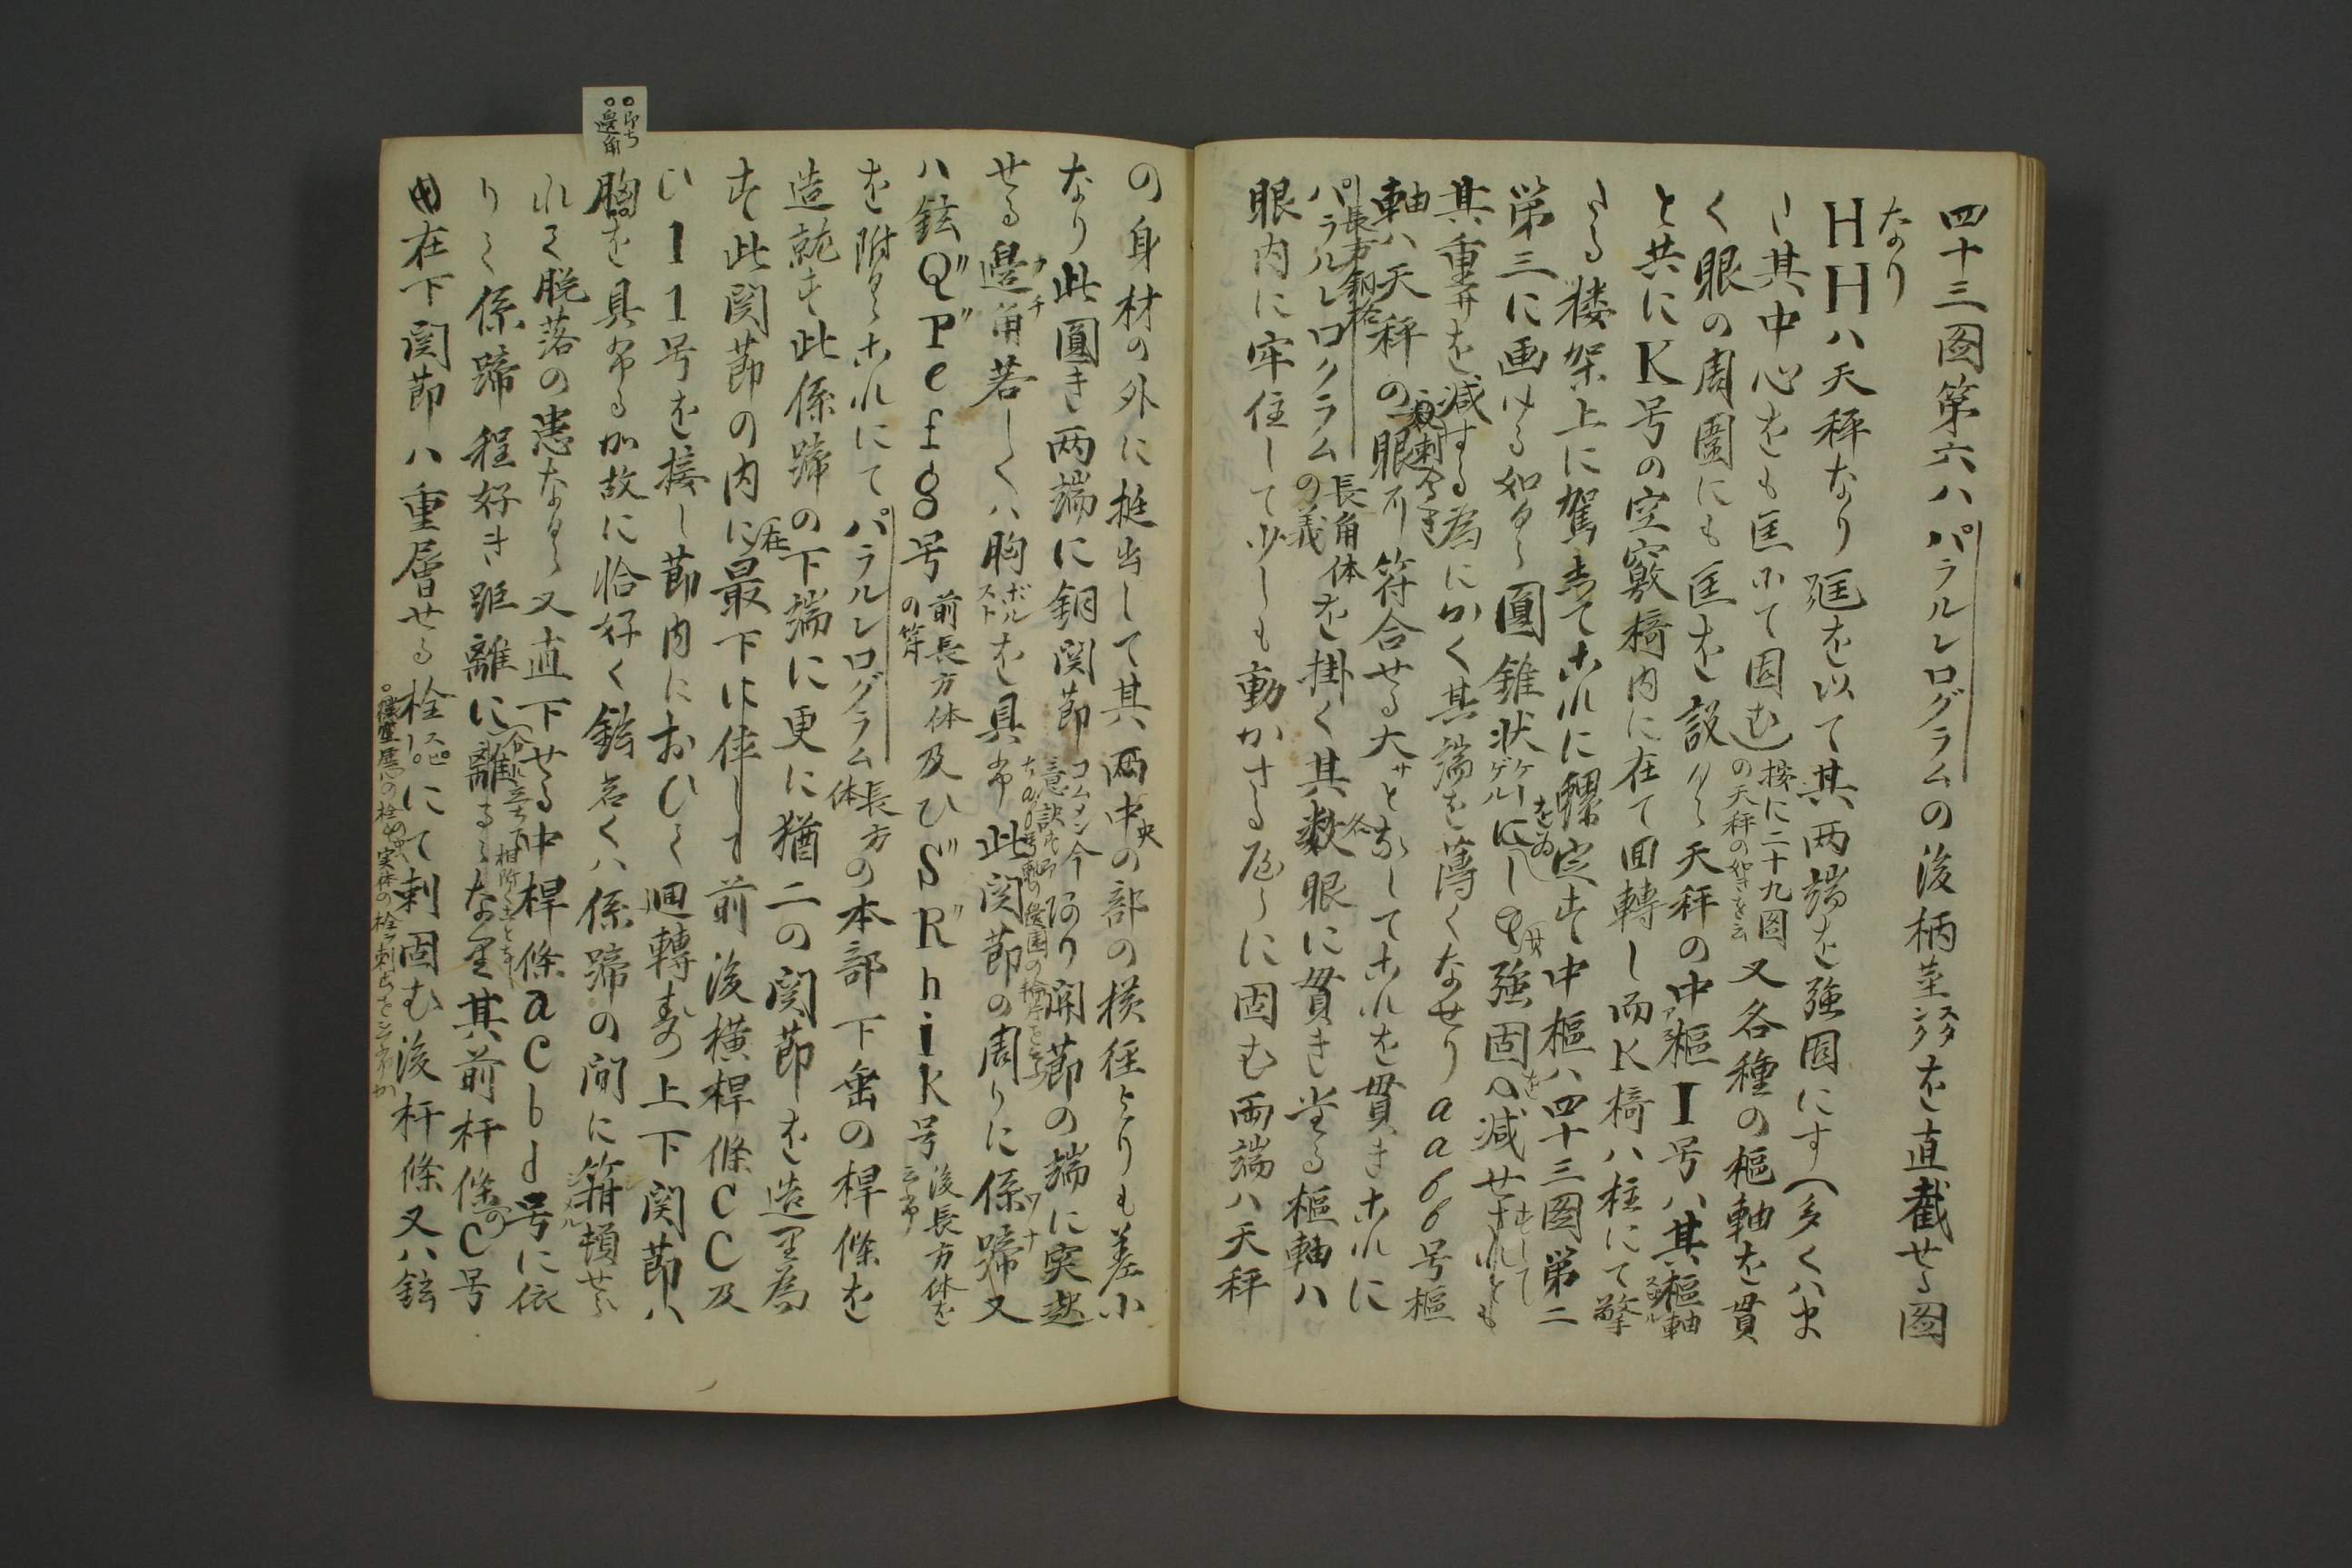 四十三図第六ハパラルレログラムの後柄茎スタンクを直截せる図
なり
HHハ天秤なり匡を以て其両端を強固にす(多くハま
た其中心をも匡にて固む)按に二十九図の天秤の如きを云又各種の枢軸を貫
く眼の周囲にも匡を設く天秤の中枢I号ハ其枢軸
と共にK号の空竅椅内に在て回轉し而K椅ハ柱にて擎
たる楼架上に駕きてこれに螺定す中枢ハ四十三図第二
第三に画ける如く圓錐状ケーゲルにし強固を減せすして
其重サを減する為にかく其端を薄くなせり aabb号枢
軸ハ天秤の眼に符合せる大サと為してこれを貫きこれに
パラルレロクラム長角体の義を掛く其数眼に貫きたる枢軸ハ
眼内に牢住して少しも動かさる様に固む両端ハ天秤
の身材の外に挺出して其両中央の部の横径よりも差小
なり此圓き両端に銅関節コムメンの端に突起
せる邉角フチ若しくハ胸ボルストを具ふ此関節の周りに係蹄ワナ又
ハ鉉Q''P''efg号前長方体の符及ひS''R''hik号後長方体を云ふ
を附くこれにてパラルレログラム長方体の本部下垂の桿條を
造就す此係蹄の下端に更に猶二の関節を造り為
す此関節の内に在最下に位して前後横桿條CC及
ひ11号を接し節内におひて廻轉す上下関節ハ
胸を具ふるが故に恰好く鉉若くハ係蹄の間に箝頓せら
れて脱落の患なく又直下せる中桿條acbd号に依
りて係蹄程好き距離に離るゝなり其前杆條のC号
在下関節ハ重層せる栓スピルにて刺固む後杆條又ハ鉉
即ち
邉角